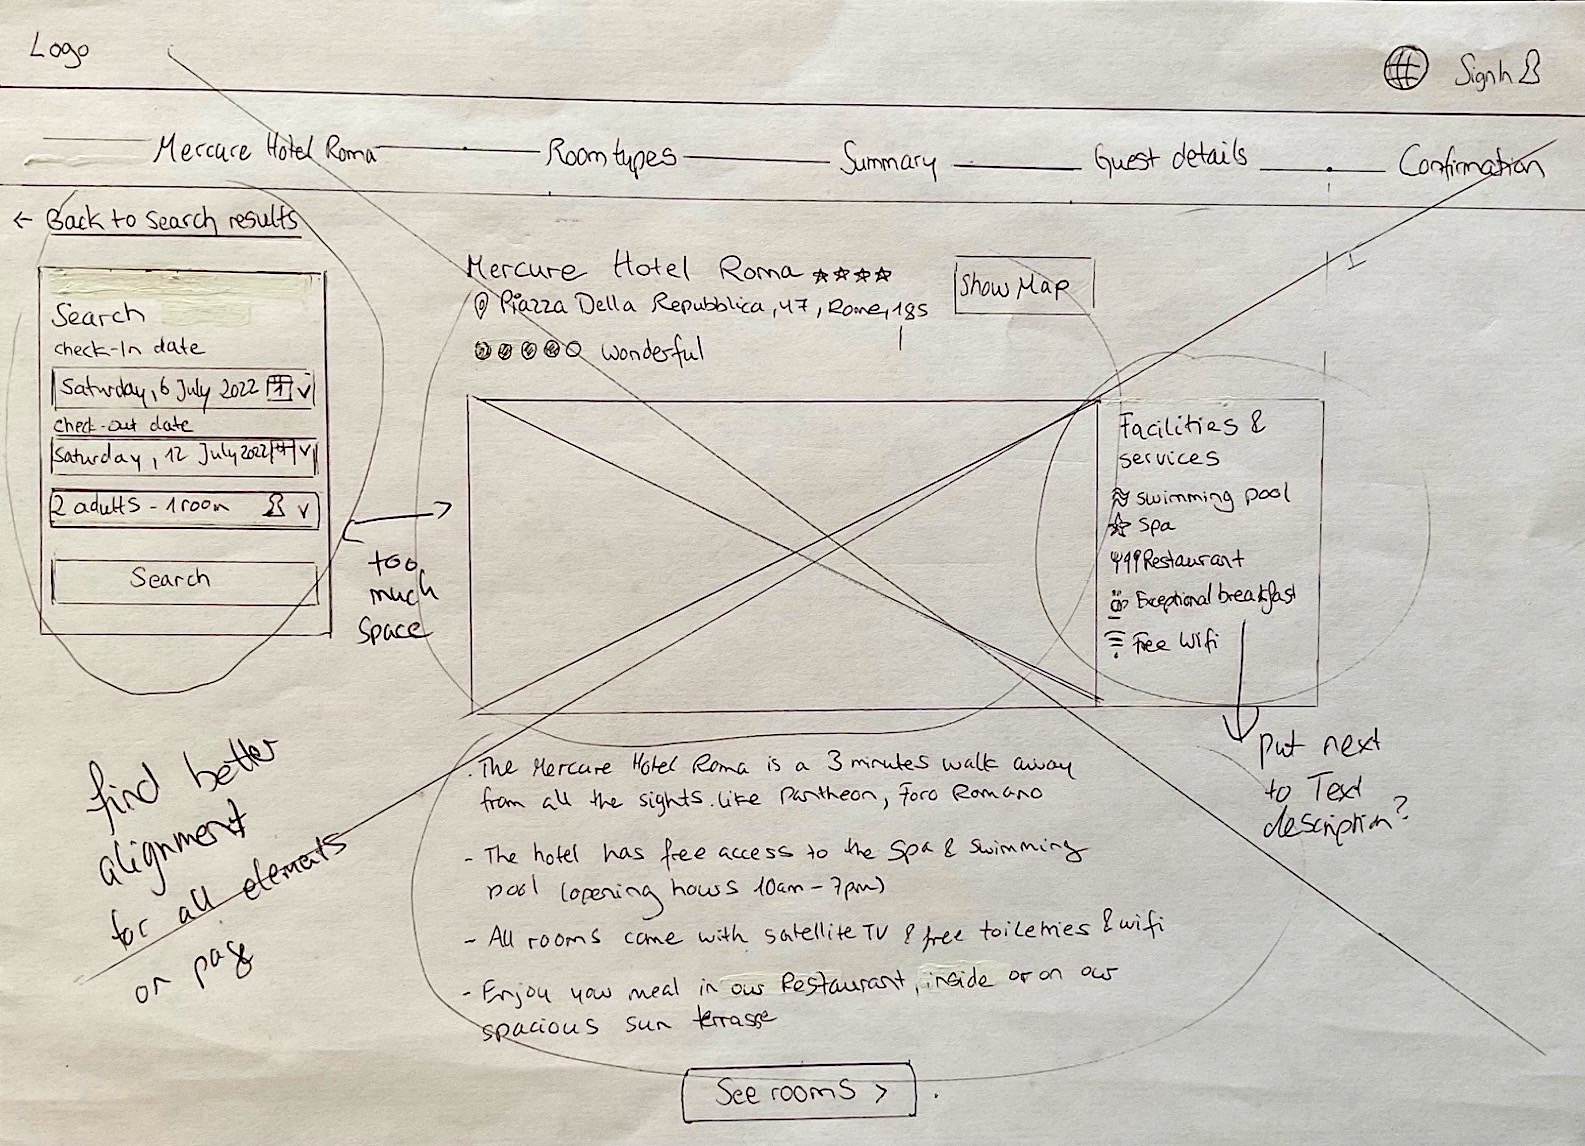 Logo
SignIn
Mercure Hotel Roma
Room types
Summary
Guest details
Confirmation
← Back to search results
Search
check-In date
Saturday, 6 July 2022
check-out date
Saturday, 12 July 2022
2 adults - 1 room
Search
too
much
space
find better
alignment
for all elements
on page
Mercure Hotel Roma
Piazza Della Repubblica, 47, Rome, 185
wonderful
Show Map
Facilities &
services
swimming pool
Spa
Restaurant
Exceptional breakfast
Free Wifi
put next
to Text
description?
- The Mercure Hotel Roma is a 3 minutes walk away
from all the sights. like Pantheon, Foro Romano
- The hotel has free access to the Spa & Swimming
pool (opening hours 10am - 7pm)
- All rooms come with satellite TV & free toiletries & wifi
- Enjoy your meal in our Restaurant, inside or on our
spacious sun terrasse
See rooms >